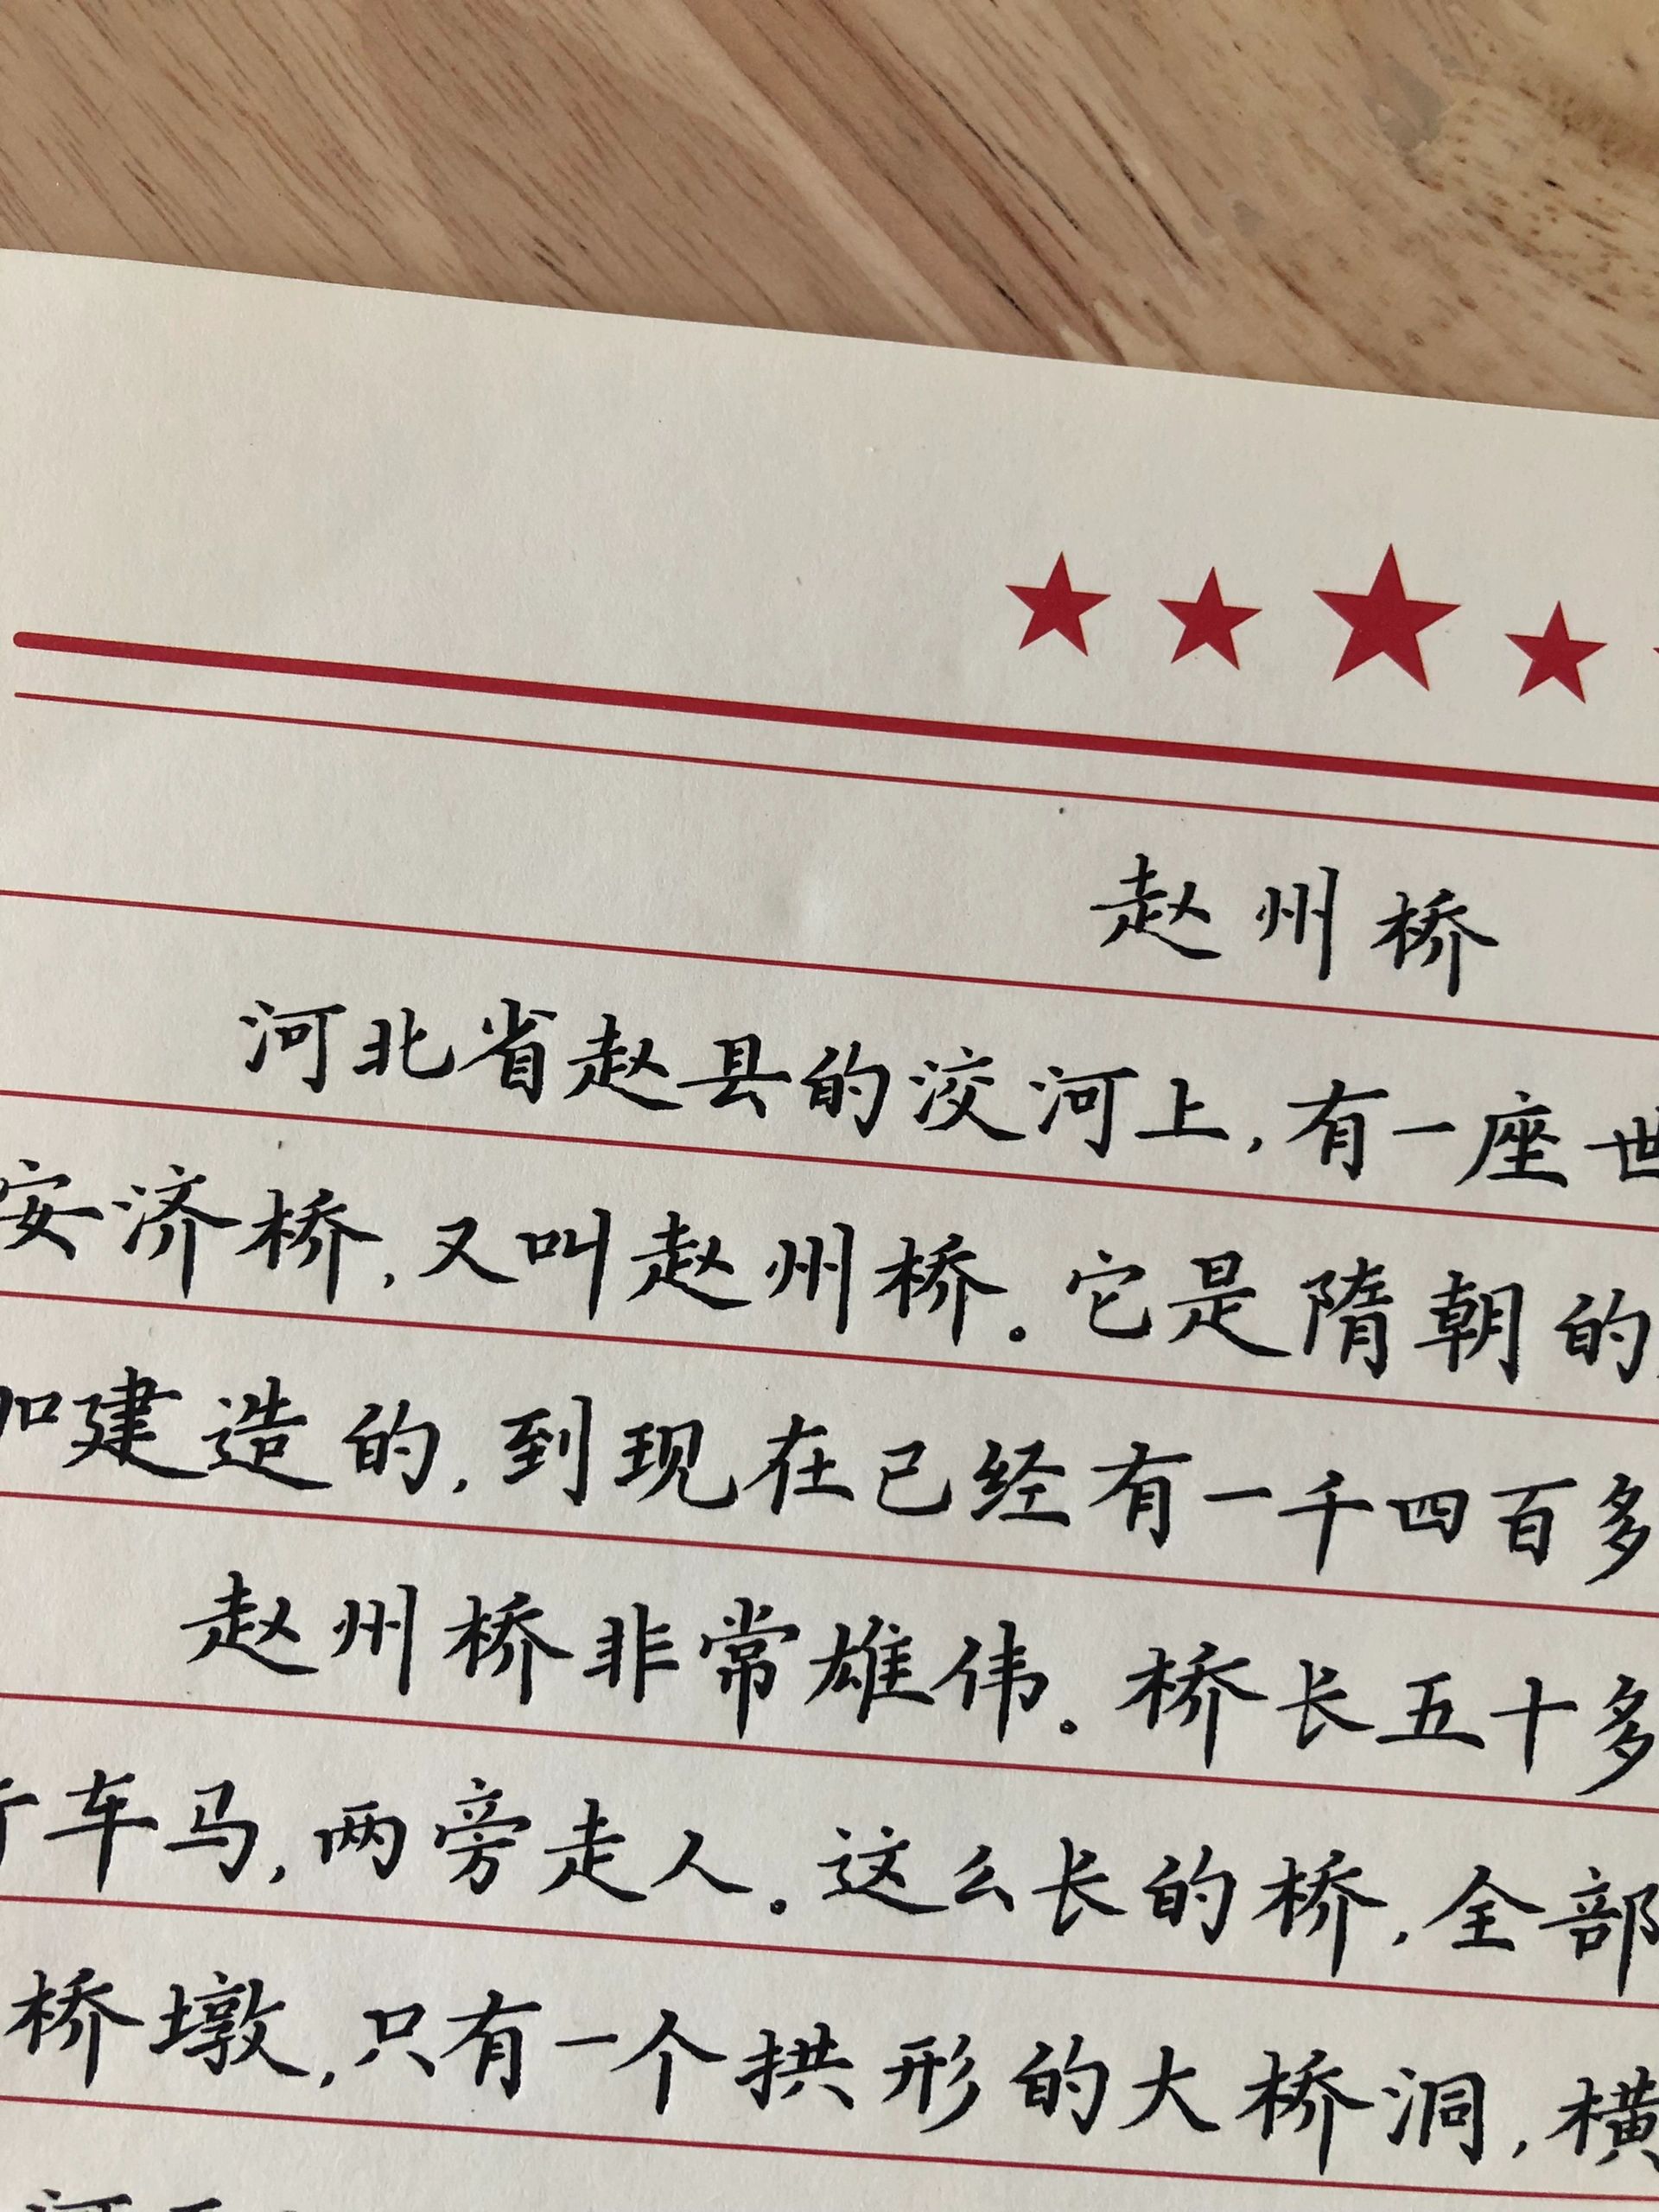 赵州桥
河北省赵县的洨河上,有一座世
安济桥,又叫赵州桥。它是隋朝的
建造的,到现在已经有一千四百多
赵州桥非常雄伟。桥长五十多
车马,两旁走人。这么长的桥,全部
桥墩,只有一个拱形的大桥洞,横